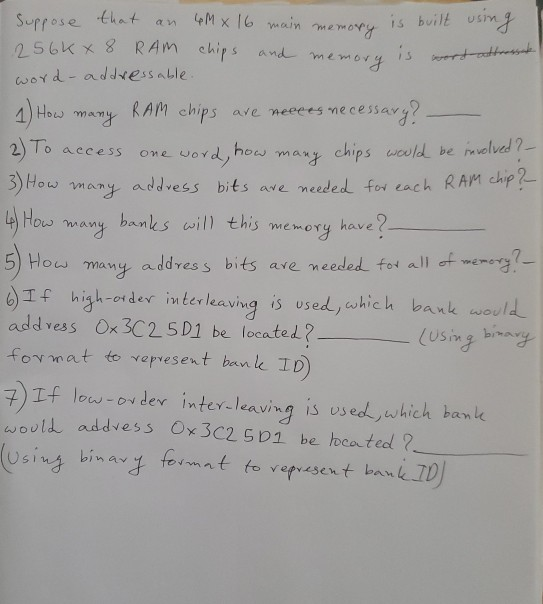 Suppose that an 4M x 16 main memory is built using
256K x 8 RAM chips and memory is
word-addressable.
1) How many RAM chips are necessary? ____
2) To access one word, how many chips would be involved? _
3) How many address bits are needed for each RAM chip? _
4) How many banks will this memory have? ____
5) How many address bits are needed for all of memory? _
6) If high-order interleaving is used, which bank would
address 0x3C25D1 be located? ____ (Using binary
format to represent bank ID)
7) If low-order inter-leaving is used, which bank
would address 0x3C25D1 be located? ____
(Using binary format to represent bank ID)